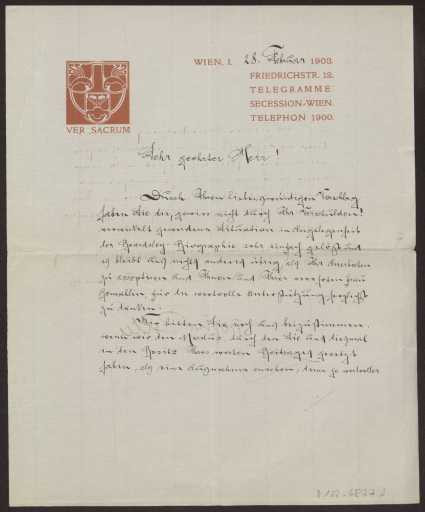 WIEN, I. 28. Februar 1903.
FRIEDRICHSTR. 12.
TELEGRAMME
SECESSION-WIEN.
TELEPHON 1900.
VER SACRUM
Sehr geehrter Herr!
Durch Ihren liebenswürdigen Vorschlag
haben Sie die, gewiss nicht durch Ihr Verschulden
verwickelt gewordene Situation in Angelegenheit
der Beardsley-Biographie sehr einfach gelöst und
es bleibt uns nichts anderes übrig, als Ihr Anerbieten
zu acceptieren und Ihnen und Ihrer verehrten Frau
Gemahlin für die wertvolle Unterstützung herzlichst
zu danken.
Wir bitten Sie noch uns beizustimmen,
wenn wir den Modus, durch den Sie uns diesmal
in den Besitz Ihres werten Beitrages gesetzt
haben, als eine Ausnahme ansehen, denn je wertvoller